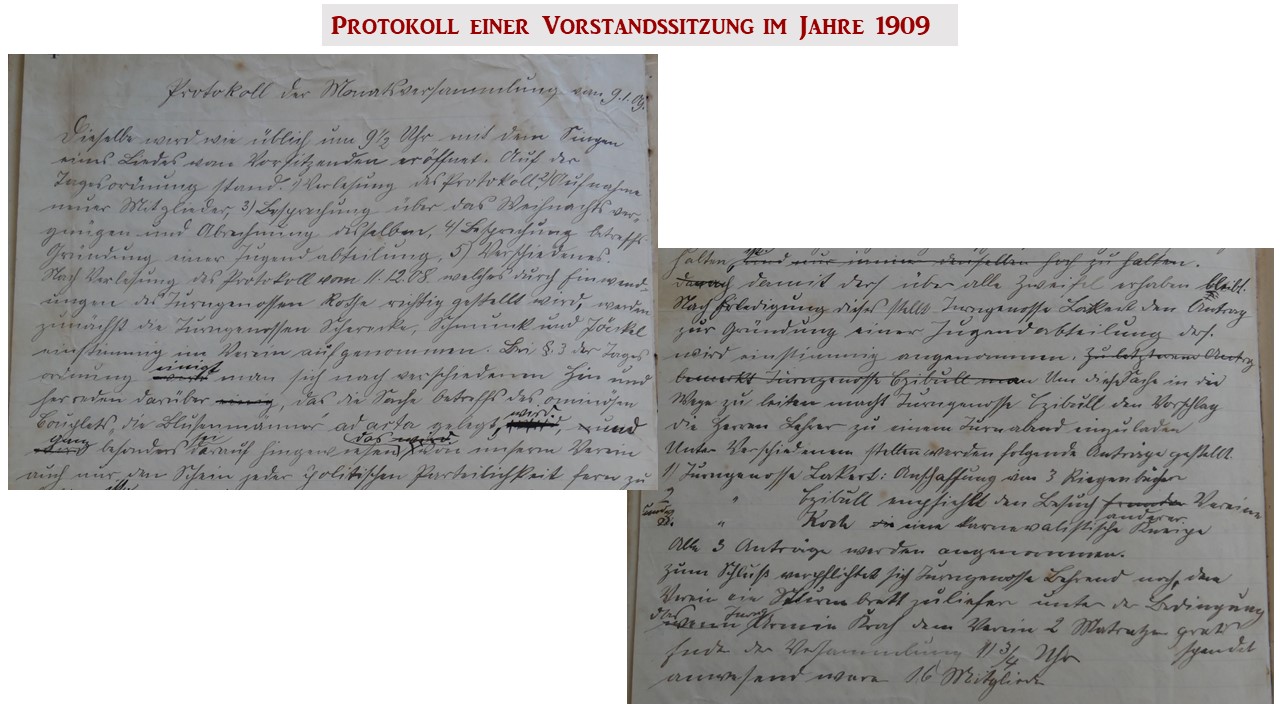 Protokoll einer Vorstandssitzung im Jahre 1909
Protokoll der Monatsversammlung vom 9.1.09.
Dieselbe wird wie üblich um 9½ Uhr mit dem Singen
eines Liedes vom Vorsitzenden eröffnet. Auf der
Tagesordnung stand. 1) Verlesung des Protokoll 2) Aufnahme
neuer Mitglieder, 3) Besprechung über das Weihnachtsver-
gnügen und Abrechnung desselben, 4) Besprechung betreffs
Gründung einer Jugendabteilung, 5) Verschiedenes.
Nach Verlesung des Protokoll vom 11.12.08 welches durch Einwend-
ungen des Turngenossen richtig gestellt wird, werden
zunächst die Turngenossen Scherneke, Schmunk und Jäckel
einstimmig im Verein aufgenommen. Bei §.3 der Tages
ordnung einigt man sich nach verschiedenem Hin und
herreden darüber, das die Sache betreffs des ominösen
Bouqlets, die Blusenmänner ad acta gelegt wird, und
ganz besonders darauf hingewiesen das wird von unserm Verein
auch nur den Schein jeder politischen Parteilichkeit fern zu
halten, und nur immer denselben hoch zu halten.
damit derf über alle Zweifel erhaben bleibt.
Nach Erledigung dieses stellt Turngenosse Lakert den Antrag
zur Gründung einer Jugendabteilung. ders.
wird einstimmig angenommen. Zu letzterem Antrag
bemerkt Turngenosse Czibull man Um diese Sache in die
Wege zu leiten macht Turngenosse Czibull den Vorschlag
die Herren Lehrer zu einem Turnabend einzuladen
Unter Verschiedenem stellen werden folgende Anträge gestellt
1) Turngenosse Lakert: Anschaffung von 3 Riegenbücher
2 " Czibull empfiehlt den Besuch fremder anderer Vereine
" Koch eine karnevalistische Kneipe
Alle 3 Anträge werden angenommen.
Zum Schluß verpflichtet sich Turngenosse Behrend noch, dem
Verein ein Sturmbrett zu liefern unter der Bedingung
das wenn Turng Armin Koch dem Verein 2 Matratzen gratis
spendet
Ende der Versammlung 11¾ Uhr
anwesend waren 16 Mitglieder